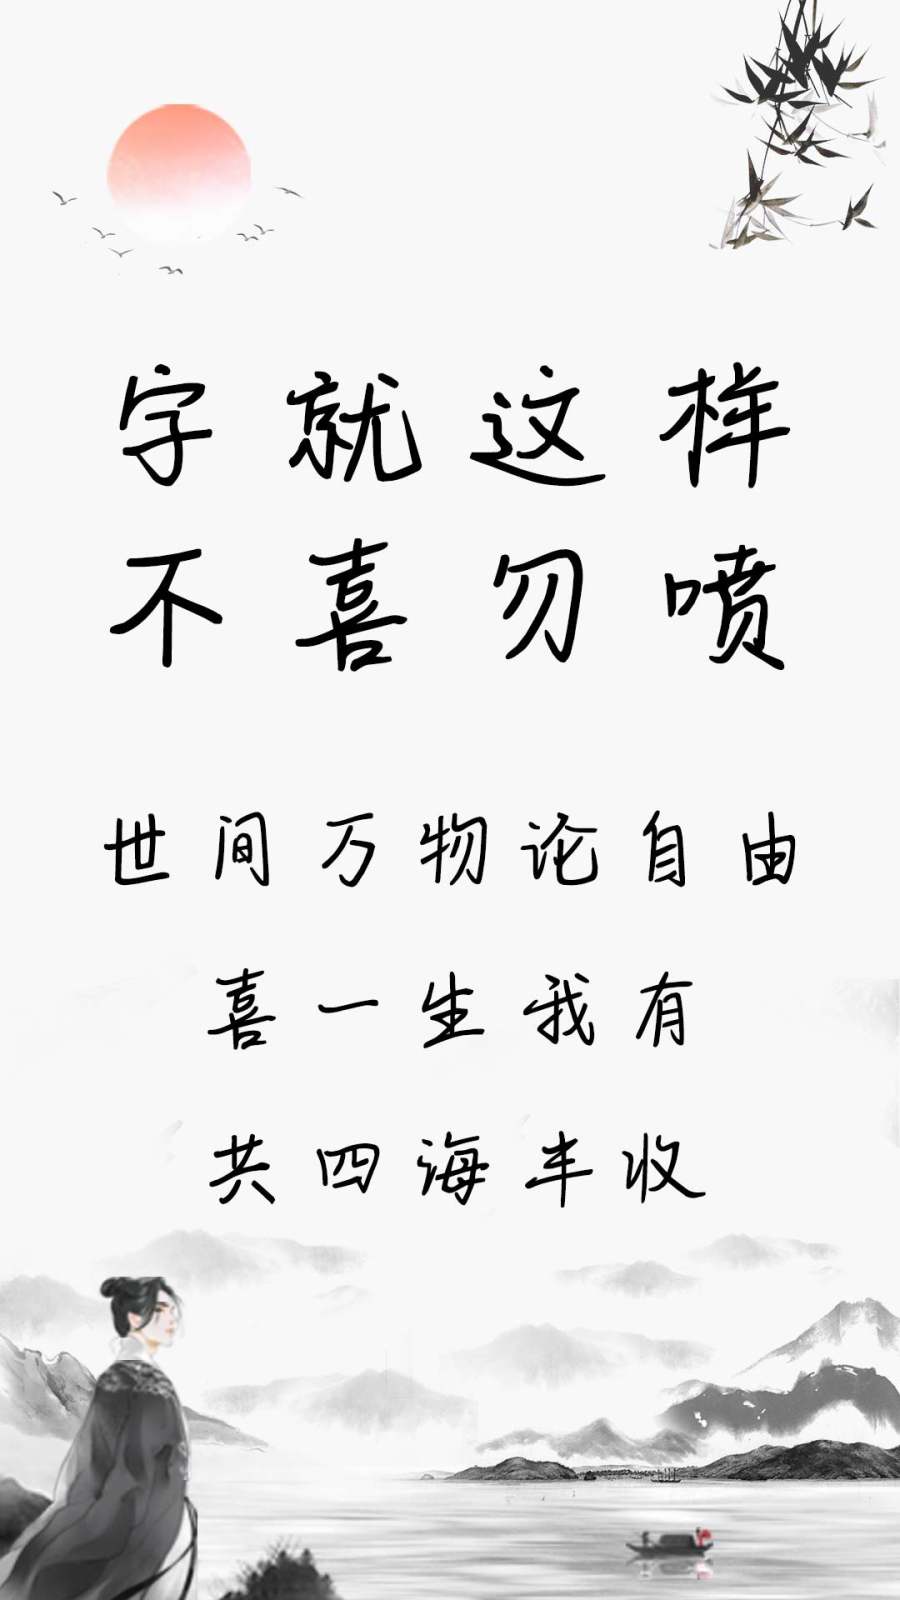 字就这样
不喜勿喷
世间万物论自由
喜一生我有
共四海丰收